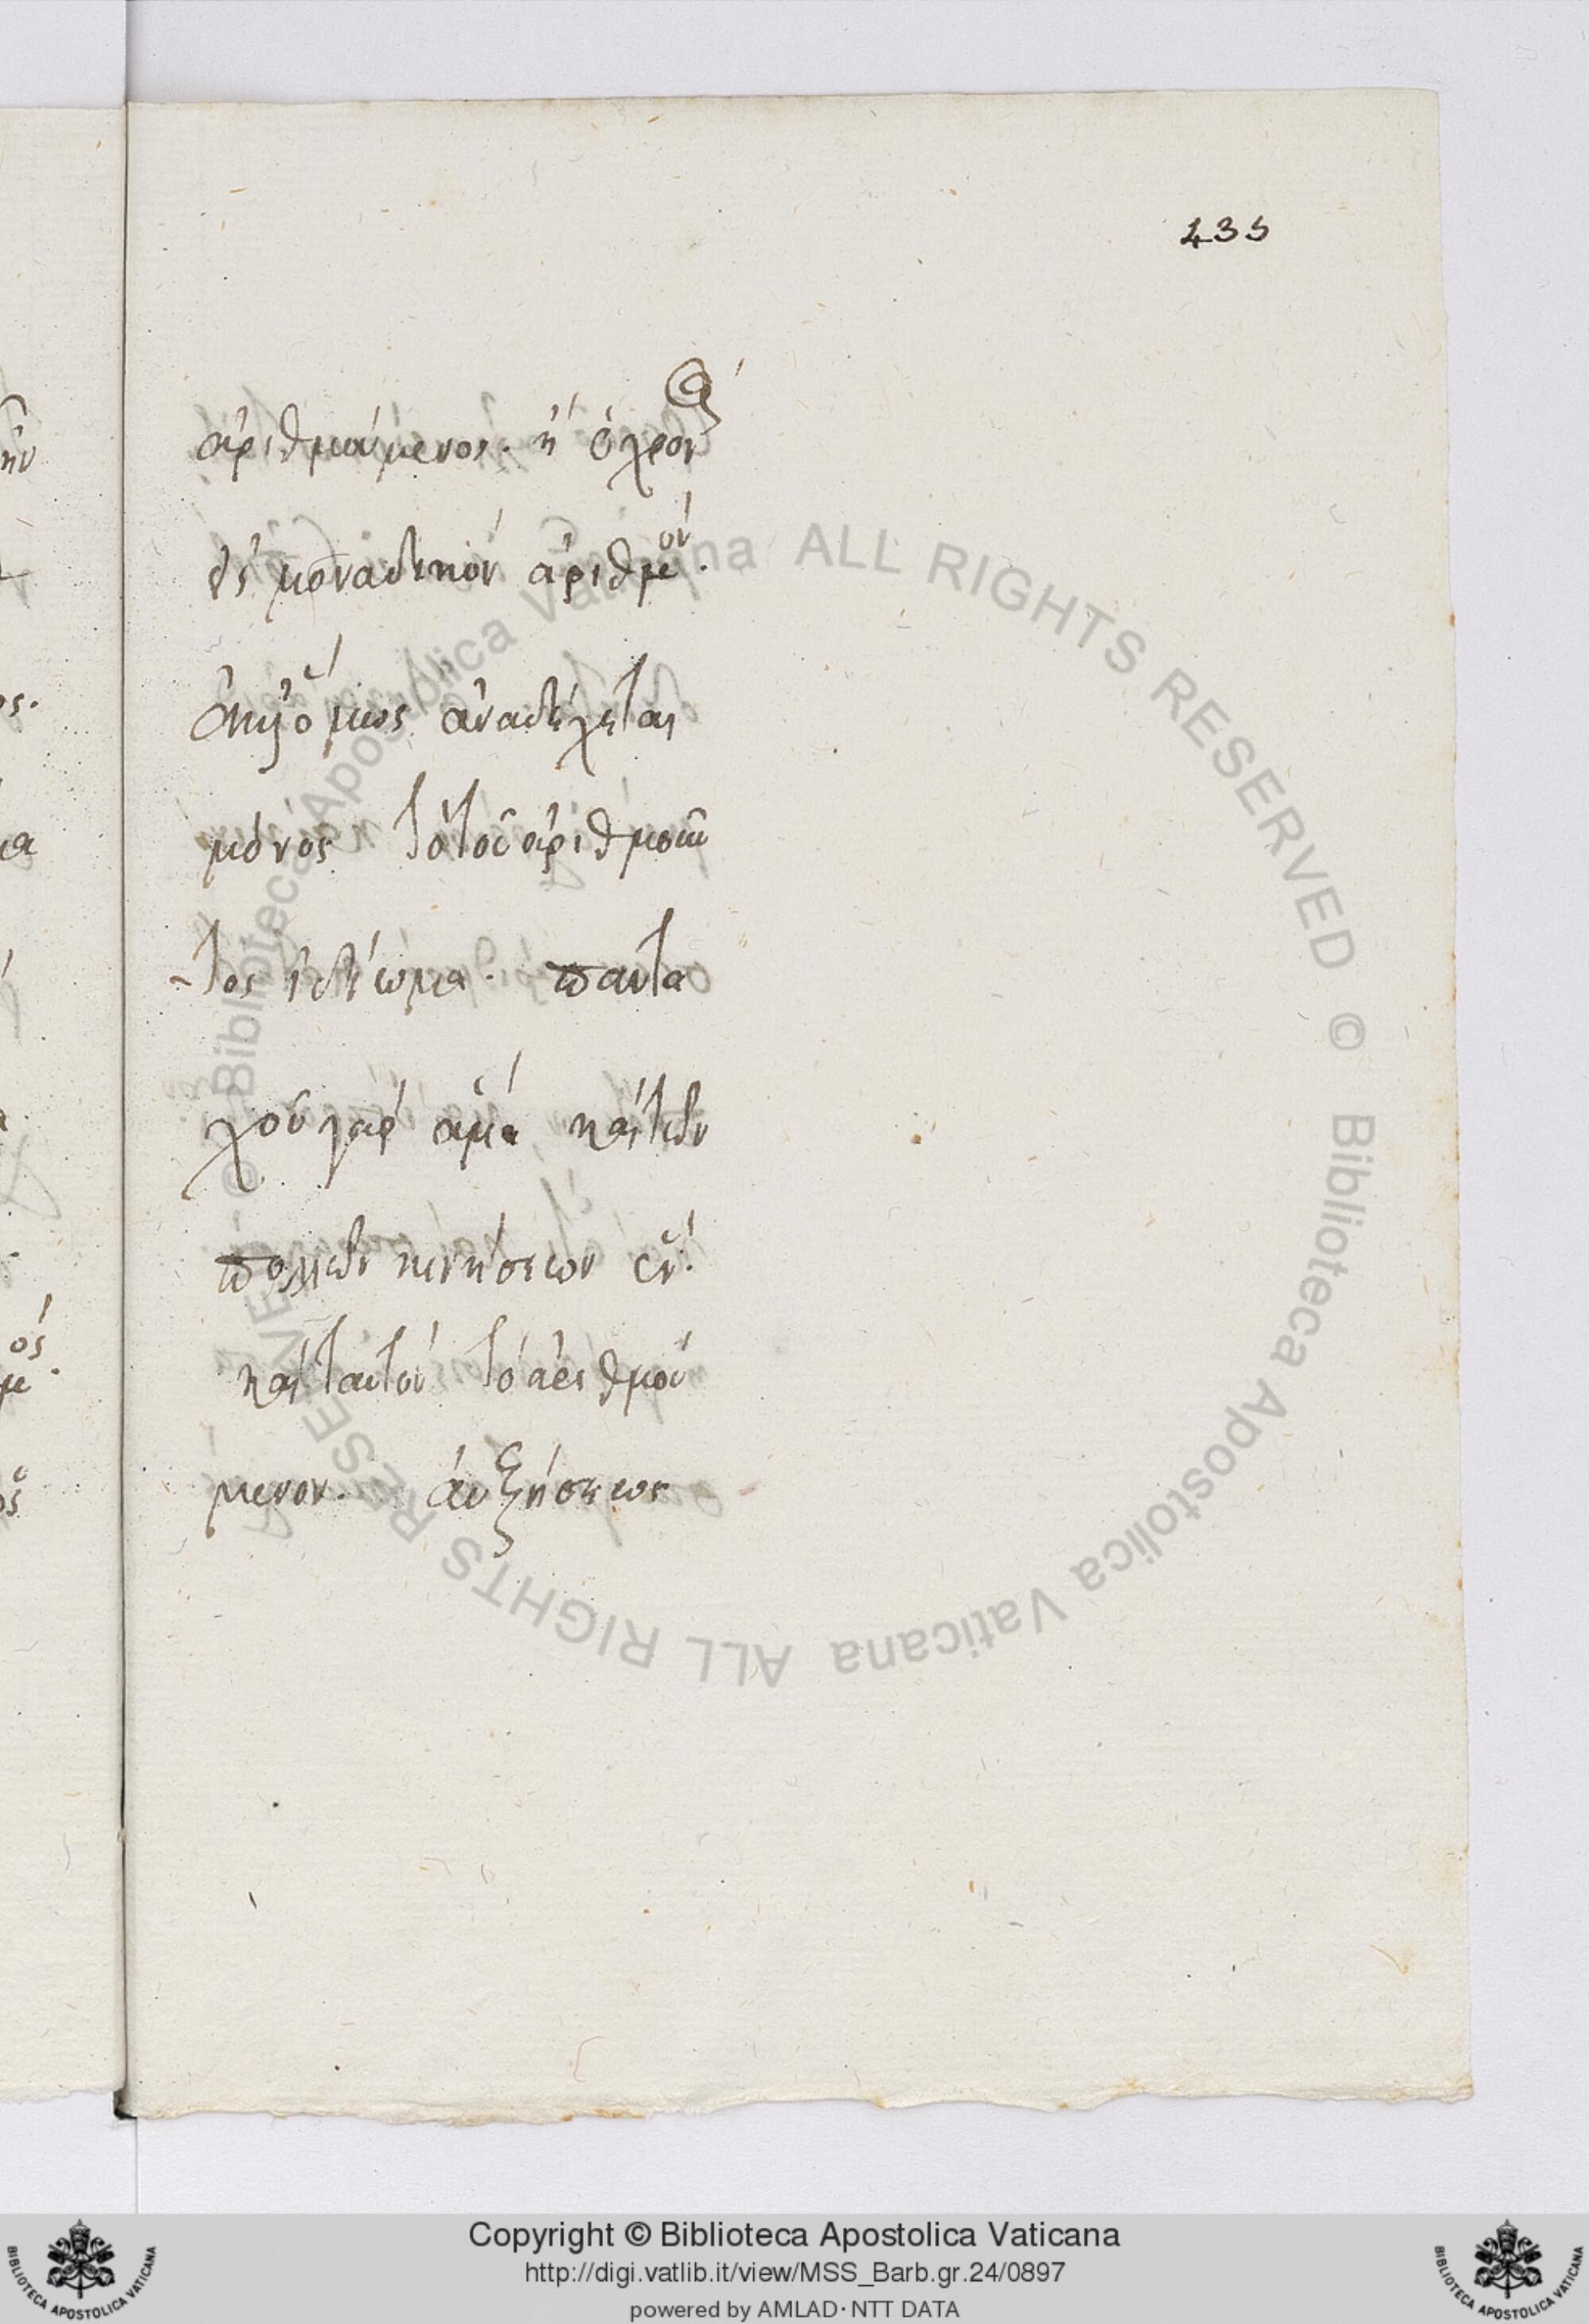 435
ἀριθμούμενος. ἢ ὁ χρόν
εἰς μοναδικὸν ἀριθμὸν.
ἀναδέχεται
μόνος τὸ τοῦ ἀριθμοῦν
τος ἰδίωμα. παντα
χοῦ γὰρ ἅμα καὶ τῶν
πολλῶν κινήσεων ἓν.
καὶ ταυτὸν τὸ ἀριθμού
μενον. αὐξήσεως
Copyright © Biblioteca Apostolica Vaticana
http://digi.vatlib.it/view/MSS_Barb.gr.24/0897
powered by AMLAD·NTT DATA
BIBLIOTECA APOSTOLICA VATICANA
BIBLIOTECA APOSTOLICA VATICANA
© Biblioteca Apostolica Vaticana ALL RIGHTS RESERVED © Biblioteca Apostolica Vaticana ALL RIGHTS RESERVED